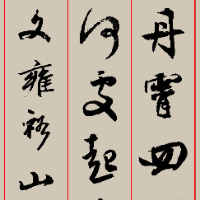 丹霄四
何處起
文雍裕山